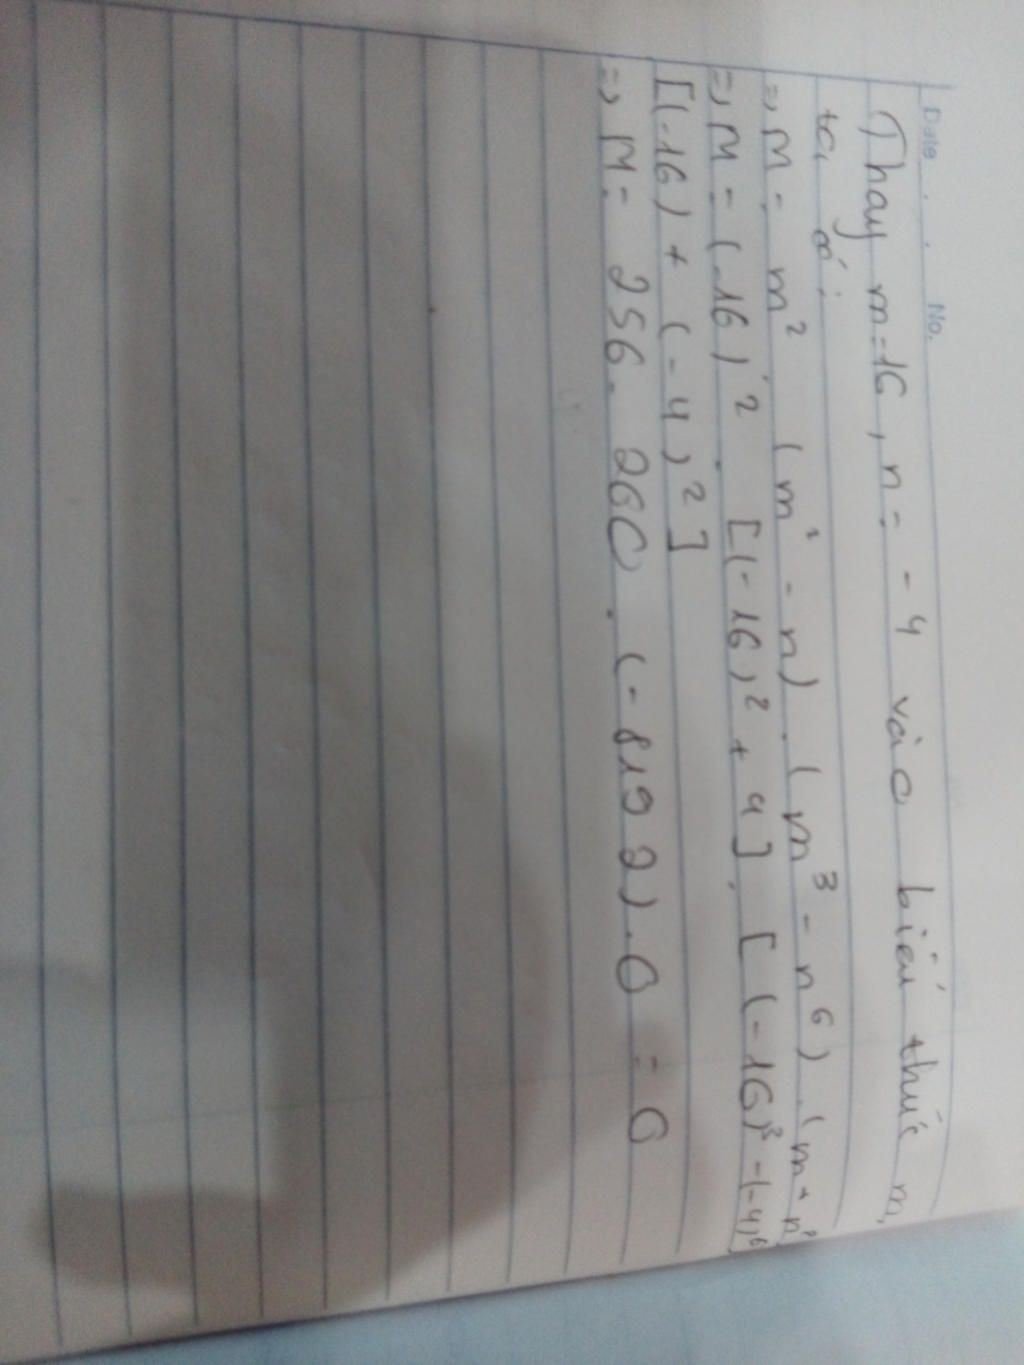 Date . . No.
Thay m=16, n = -4 vào biểu thức m,
ta có:
=> M = m² (m² - n) . (m³ - n⁶) . (m + n²)
=> M = (-16)² [(-16)² + 4] . [(-16)³ - (-4)⁶]
[(-16) + (-4)²]
=> M = 256 . 260 . (-8192) . 0 = 0